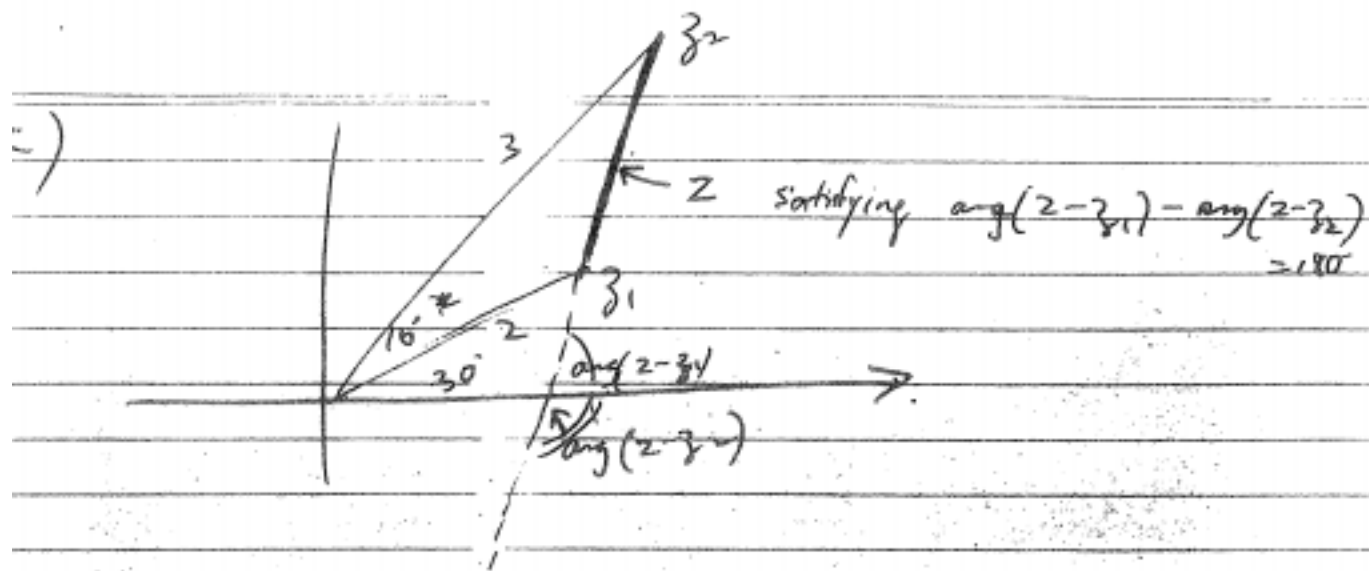 z₂
)
3
z satisfying arg(z-z₁) - arg(z-z₂)
= 180°
z₁
10° *
2
30°
arg(z-z₁)
arg(z-z₂)